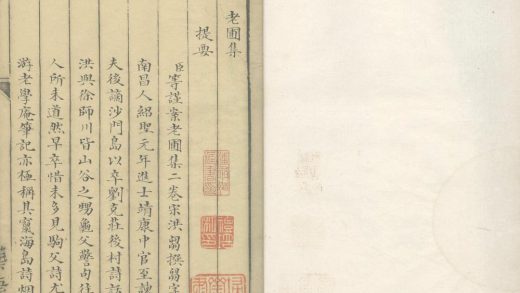 老圃集
提要
臣等謹案老圃集二卷宋洪芻撰芻字
南昌人紹聖元年進士靖康中官至諫
夫後謫沙門島以卒劉克莊後村詩話
洪與徐師川皆山谷之甥龜父警句往
人所未道然早卒惜未多見駒父詩尤
游老學庵筆記亦極稱其竄海島詩烟